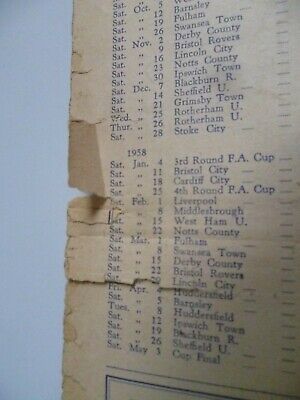 Sat. Oct. 5
Sat. " 12 Barnsley
Sat. " 19 Fulham
Sat. " 26 Swansea Town
Sat. Nov. 2 Derby County
Sat. " 9 Bristol Rovers
Sat. " 16 Lincoln City
Sat. " 23 Notts County
Sat. " 30 Ipswich Town
Sat. Dec. 7 Blackburn R.
Sat. " 14 Sheffield U.
Sat. " 21 Grimsby Town
Wed. " 25 Rotherham U.
Thur. " 26 Rotherham U.
Sat. " 28 Stoke City
1958
Sat. Jan. 4 3rd Round F.A. Cup
Sat. " 11 Bristol City
Sat. " 18 Cardiff City
Sat. " 25 4th Round F.A. Cup
Sat. Feb. 1 Liverpool
" 8 Middlesbrough
" 15 West Ham U.
Sat. " 22 Notts County
Sat. Mar. 1 Fulham
Sat. " 8 Swansea Town
Sat. " 15 Derby County
Sat. " 22 Bristol Rovers
Lincoln City
Fri. Apr. 4 Huddersfield
Sat. " 5 Barnsley
Tues. " 8 Huddersfield
Sat. " 12 Ipswich Town
Sat. " 19 Blackburn R.
Sat. " 26 Sheffield U.
Sat. May 3 Cup Final